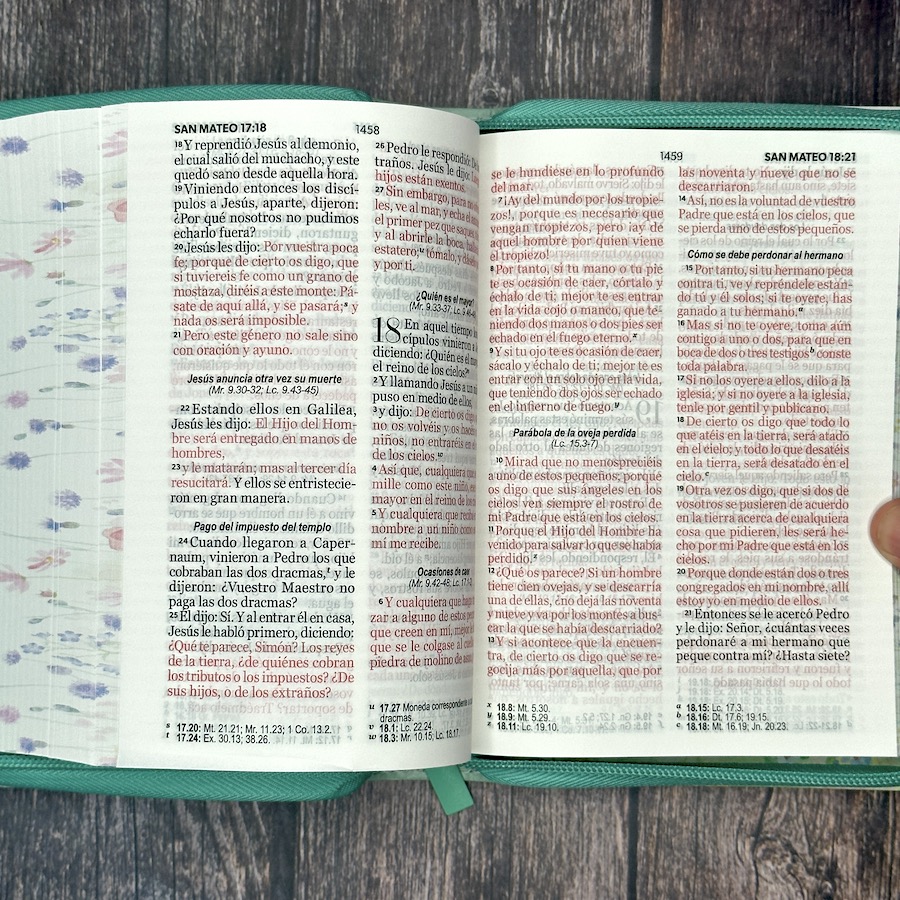 SAN MATEO 17:18
1458
18 Y reprendió Jesús al demonio,
el cual salió del muchacho, y este
quedó sano desde aquella hora.
19 Viniendo entonces los discí-
pulos a Jesús, aparte, dijeron:
¿Por qué nosotros no pudimos
echarlo fuera?
20 Jesús les dijo: Por vuestra poca
fe; porque de cierto os digo, que
si tuviereis fe como un grano de
mostaza, diréis a este monte: Pá-
sate de aquí allá, y se pasará; s y
nada os será imposible.
21 Pero este género no sale sino
con oración y ayuno.
Jesús anuncia otra vez su muerte
(Mr. 9.30-32; Lc. 9.43-45)
22 Estando ellos en Galilea,
Jesús les dijo: El Hijo del Hom-
bre será entregado en manos de
hombres,
23 y le matarán; mas al tercer día
resucitará. Y ellos se entristecie-
ron en gran manera.
Pago del impuesto del templo
24 Cuando llegaron a Caper-
naum, vinieron a Pedro los que
cobraban las dos dracmas, t y le
dijeron: ¿Vuestro Maestro no
paga las dos dracmas?
25 Él dijo: Sí. Y al entrar él en casa,
Jesús le habló primero, diciendo:
¿Qué te parece, Simón? Los reyes
de la tierra, ¿de quiénes cobran
los tributos o los impuestos? ¿De
sus hijos, o de los extraños?
s 17.20: Mt. 21.21; Mr. 11.23; 1 Co. 13.2.
t 17.24: Ex. 30.13; 38.26.
26 Pedro le respondió:
traños. Jesús le dijo:
hijos están exentos.
27 Sin embargo, para no
les, ve al mar, y echa el
el primer pez que saques,
y al abrirle la boca,
estatero; u tómalo, y
y por ti.
¿Quién es el mayor?
(Mr. 9.33-37; Lc. 9.46-
18 En aquel tiempo los
cípulos vinieron a
diciendo: ¿Quién es el
el reino de los cielos? v
2 Y llamando Jesús a un
puso en medio de ellos,
3 y dijo: De cierto os
no os volvéis y os
niños, no entraréis en
de los cielos. w
4 Así que, cualquiera
mille como este niño,
mayor en el reino de los
5 Y cualquiera que
nombre a un niño como
mí me recibe.
Ocasiones de caer
(Mr. 9.42-48; Lc. 17.1-
6 Y cualquiera que
zar a alguno de estos
que creen en mí, mejor
que se le colgase al
piedra de molino de
u 17.27 Moneda correspondiente a
dracmas.
v 18.1: Lc. 22.24.
w 18.3: Mr. 10.15; Lc. 18.17.
1459
SAN MATEO 18:21
se le hundiese en lo profundo
del mar.
7 ¡Ay del mundo por los tropie-
zos!, porque es necesario que
vengan tropiezos, pero ¡ay de
aquel hombre por quien viene
el tropiezo!
8 Por tanto, si tu mano o tu pie
te es ocasión de caer, córtalo y
échalo de ti; mejor te es entrar
en la vida cojo o manco, que te-
niendo dos manos o dos pies ser
echado en el fuego eterno. x
9 Y si tu ojo te es ocasión de caer,
sácalo y échalo de ti; mejor te es
entrar con un solo ojo en la vida,
que teniendo dos ojos ser echado
en el infierno de fuego. y
Parábola de la oveja perdida
(Lc. 15.3-7)
10 Mirad que no menospreciéis
a uno de estos pequeños; porque
os digo que sus ángeles en los
cielos ven siempre el rostro de
mi Padre que está en los cielos.
11 Porque el Hijo del Hombre ha
venido para salvar lo que se había
perdido. z
12 ¿Qué os parece? Si un hombre
tiene cien ovejas, y se descarría
una de ellas, ¿no deja las noventa
y nueve y va por los montes a bus-
car la que se había descarriado?
13 Y si acontece que la encuen-
tra, de cierto os digo que se re-
gocija más por aquella, que por
x 18.8: Mt. 5.30.
y 18.9: Mt. 5.29.
z 18.11: Lc. 19.10.
las noventa y nueve que no se
descarriaron.
14 Así, no es la voluntad de vuestro
Padre que está en los cielos, que
se pierda uno de estos pequeños.
Cómo se debe perdonar al hermano
15 Por tanto, si tu hermano peca
contra ti, ve y repréndele estan-
do tú y él solos; si te oyere, has
ganado a tu hermano. a
16 Mas si no te oyere, toma aún
contigo a uno o dos, para que en
boca de dos o tres testigos b conste
toda palabra.
17 Si no los oyere a ellos, dilo a la
iglesia; y si no oyere a la iglesia,
tenle por gentil y publicano.
18 De cierto os digo que todo lo
que atéis en la tierra, será atado
en el cielo; y todo lo que desatéis
en la tierra, será desatado en el
cielo. c
19 Otra vez os digo, que si dos de
vosotros se pusieren de acuerdo
en la tierra acerca de cualquiera
cosa que pidieren, les será he-
cho por mi Padre que está en los
cielos.
20 Porque donde están dos o tres
congregados en mi nombre, allí
estoy yo en medio de ellos.
21 Entonces se le acercó Pedro
y le dijo: Señor, ¿cuántas veces
perdonaré a mi hermano que
peque contra mí? ¿Hasta siete?
a 18.15: Lc. 17.3.
b 18.16: Dt. 17.6; 19.15.
c 18.18: Mt. 16.19; Jn. 20.23.